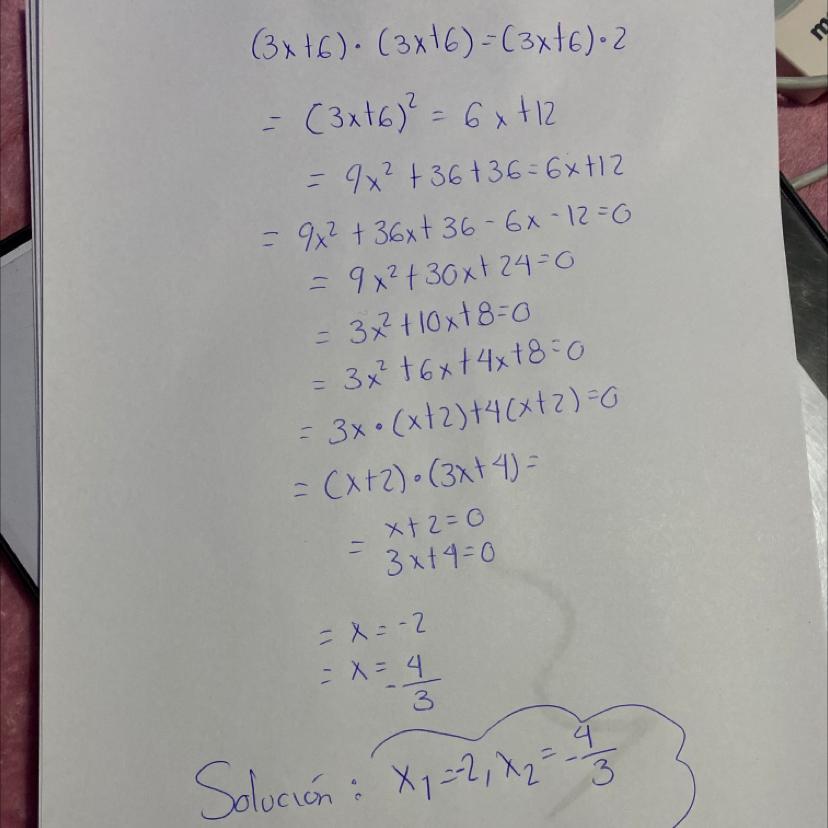 (3x+6)·(3x+6)=(3x+6)·2
= (3x+6)² = 6x+12
= 9x² +36+36=6x+12
= 9x² + 36x+36 - 6x - 12=0
= 9x²+30x+24=0
= 3x²+10x+8=0
= 3x² +6x+4x+8=0
= 3x·(x+2)+4(x+2)=0
= (x+2)·(3x+4)=
= x+2=0
3x+4=0
= x=-2
= x=-4/3
Solución: x₁=-2, x₂=-4/3